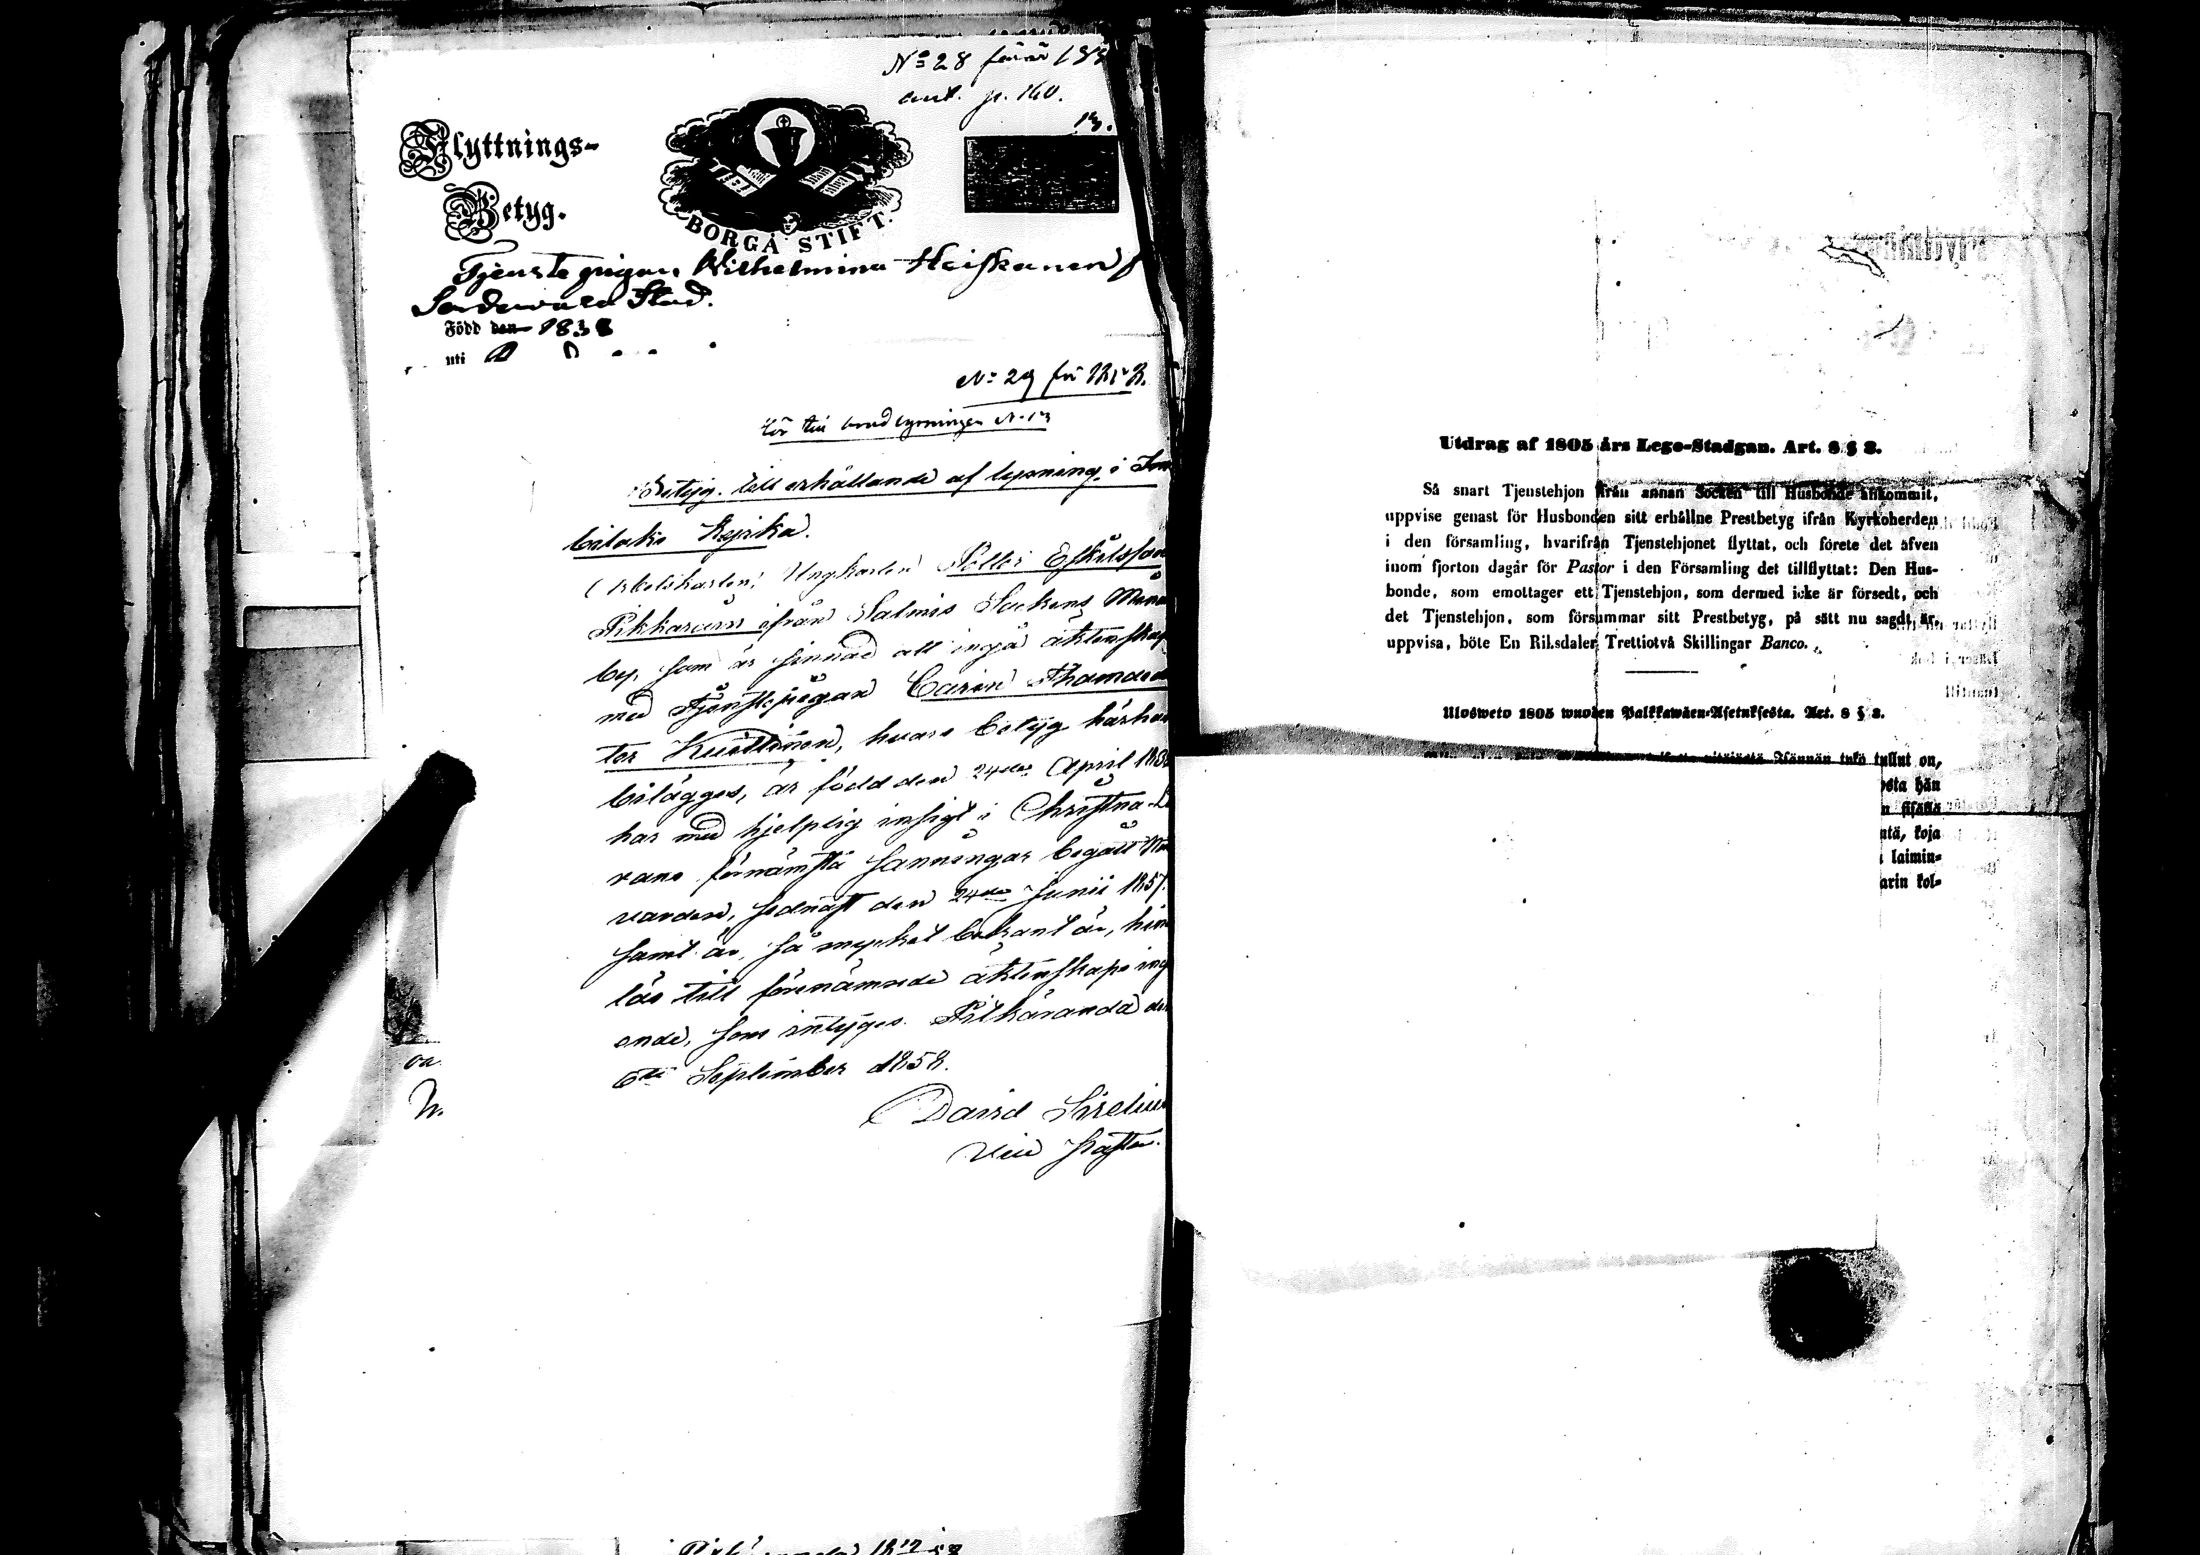 No 28 för år 185
ant. p. 160.
13.
Flyttnings-
Betyg.
BORGÅ STIFT.
Tjenstepigan Wilhelmina Heiskanen
Sordawala Stad.
Född den 1838
uti
No 29 för 1858.
hör till No 13
Betyg till erhållande af lysning i Im
bilaks kyrka.
Arbetskarlen, Ungkarlen Petter Eskilsson
Pikkarain ifrån Salmis Sockens
by, som är sinnad att ingå äktenskap
med Tjenstepigan Carin Thomasdot
ter Kuittinen, hvars betyg härhos
bilägges, är född den 24de April 183
har med hjelplig insigt i Christna Lä
rans förnämsta sanningar begått Natt
varden, sednast den 24de Junii 1857.
samt är, så mycket bekant är, hin
lös till förenämnde äktenskaps ingå
ende, som intygas. Pitkäranda den
6te September 1858.
David Sirelius
Vice Pastor.
oa
Pitkäranda 18 58
Utdrag af 1805 års Lego-Stadgan. Art. 8 § 3.
Så snart Tjenstehjon från annan Socken till Husbonde ankommit,
uppvise genast för Husbonden sitt erhållne Prestbetyg ifrån Kyrkoherden
i den församling, hvarifrån Tjenstehjonet flyttat, och förete det äfven
inom fjorton dagar för Pastor i den Församling det tillflyttat: Den Hus-
bonde, som emottager ett Tjenstehjon, som dermed icke är försedt, och
det Tjenstehjon, som försummar sitt Prestbetyg, på sätt nu sagdt är,
uppvisa, böte En Riksdaler Trettiotvå Skillingar Banco.
Ulosweto 1805 wuoden Palkkawäen-Asetuksesta. Art. 8 § 3.
pitäjästä Isännän tykö tullut on,
osta hän
n sisällä
ntä, koja
laimin-
arin kol-